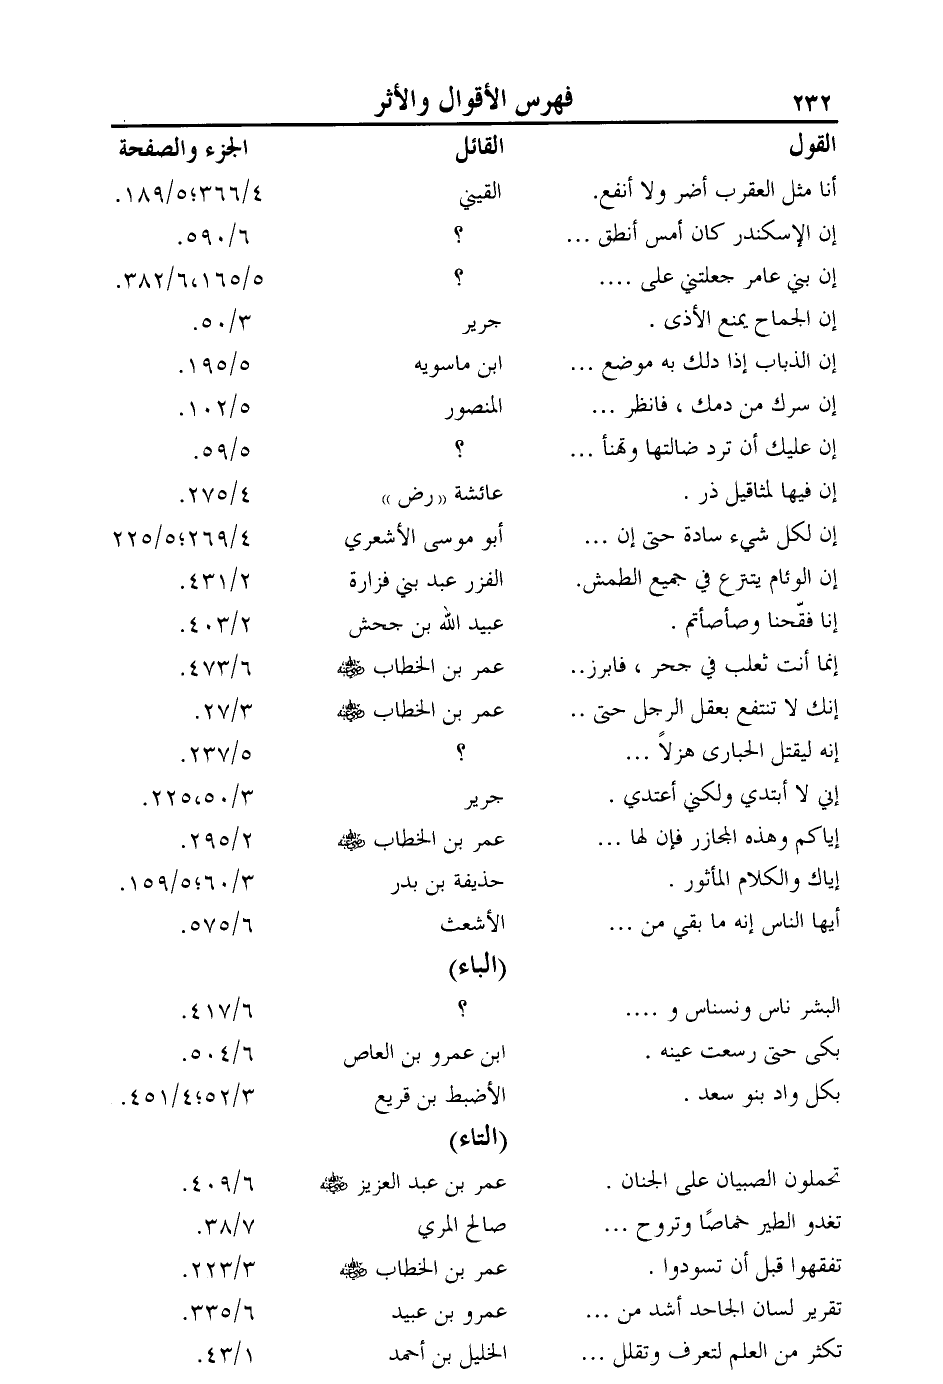 ٢٣٢ فهرس الأقوال والأثر
القول القائل الجزء والصفحة
أنا مثل العقرب أضر ولا أنفع. القيني ٣٦٦/٤؛١٨٩/٥.
إن الإسكندر كان أمس أنطق ... ؟ ٥٩٠/٦.
إن بني عامر جعلتني على .... ؟ ١٦٥/٥،٣٨٢/٦.
إن الجماح يمنع الأذى . جرير ٥٠/٣.
إن الذباب إذا دلك به موضع ... ابن ماسويه ١٩٥/٥.
إن سرك من دمك ، فانظر ... المنصور ١٠٢/٥.
إن عليك أن ترد ضالتها وتهنأ ... ؟ ٥٩/٥.
إن فيها لمثاقيل ذر . عائشة ((رض )) ٢٧٥/٤.
إن لكل شيء سادة حتى إن ... أبو موسى الأشعري ٢٦٩/٤؛٢٢٥/٥
إن الوئام يتنزع في جميع الطمش. الفزر عبد بني فزارة ٤٣١/٢.
إنا فقّحنا وصأصأتم . عبيد الله بن جحش ٤٠٣/٢.
إنما أنت ثعلب في جحر ، فابرز.. عمر بن الخطاب ﷺ ٤٧٣/٦.
إنك لا تنتفع بعقل الرجل حتى .. عمر بن الخطاب ﷺ ٢٧/٣.
إنه ليقتل الحبارى هزلاً ... ؟ ٢٣٧/٥.
إني لا أبتدي ولكني أعتدي . جرير ٢٢٥،٥٠/٣.
إياكم وهذه المجازر فإن لها ... عمر بن الخطاب ﷺ ٢٩٥/٢.
إياك والكلام المأثور . حذيفة بن بدر ٦٠/٣؛١٥٩/٥.
أيها الناس إنه ما بقي من ... الأشعث ٥٧٥/٦.
(الباء)
البشر ناس ونسناس و .... ؟ ٤١٧/٦.
بكى حتى رسعت عينه . ابن عمرو بن العاص ٥٠٤/٦.
بكل واد بنو سعد . الأضبط بن قريع ٥٢/٣؛٤٥١/٤.
(التاء)
تحملون الصبيان على الجنان . عمر بن عبد العزيز ﷺ ٤٠٩/٦.
تغدو الطير خماصًا وتروح ... صالح المري ٣٨/٧.
تفقهوا قبل أن تسودوا . عمر بن الخطاب ﷺ ٢٢٣/٣.
تقرير لسان الجاحد أشد من ... عمرو بن عبيد ٣٣٥/٦.
تكثر من العلم لتعرف وتقلل ... الخليل بن أحمد ٤٣/١.